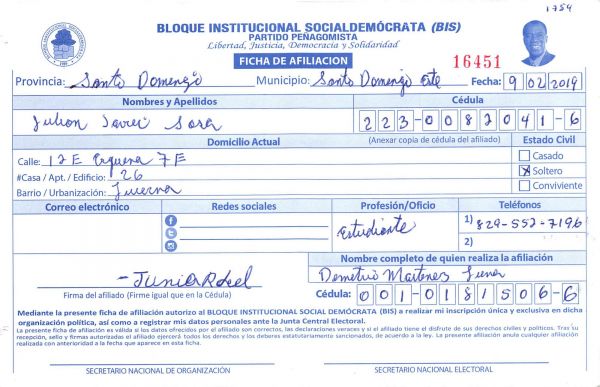 1754
BLOQUE INSTITUCIONAL SOCIALDEMÓCRATA (BIS)
PARTIDO PEÑAGOMISTA
Libertad, Justicia, Democracia y Solidaridad
FICHA DE AFILIACION
16451
Provincia: Santo Domingo Municipio: Santo Domingo Este Fecha: 9 02 2019
Nombres y Apellidos Cédula
Julion Javier Sosa 223-0082041-6
Domicilio Actual (Anexar copia de cédula del afiliado) Estado Civil
Calle: 12 E Esquena 7 E
Casado
#Casa / Apt. / Edificio: 26
X Soltero
Barrio / Urbanización:
Conviviente
Correo electrónico Redes sociales Profesión/Oficio Teléfonos
Estudiante
1) 829-552-7196
2)
Nombre completo de quien realiza la afiliación
Demetrio Martenez
Firma del afiliado (Firme igual que en la Cédula)
Cédula: 001-0181506-6
Mediante la presente ficha de afiliación autorizo al BLOQUE INSTITUCIONAL SOCIAL DEMÓCRATA (BIS) a realizar mi inscripción única y exclusiva en dicha
organización política, así como a registrar mis datos personales ante la Junta Central Electoral.
La presente ficha de afiliación es válida si los datos ofrecidos por el afiliado son correctos, las declaraciones veraces y si el afiliado tiene el disfrute de sus derechos civiles y políticos. Tras su
recepción, sello y firmas autorizadas el afiliado ejercerá todos los derechos y los deberes estatutariamente sancionados, de acuerdo a la ley. La presente afiliación anula cualquier afiliación
realizada con anterioridad a la fecha que aparece en esta ficha.
SECRETARIO NACIONAL DE ORGANIZACIÓN SECRETARIO NACIONAL ELECTORAL